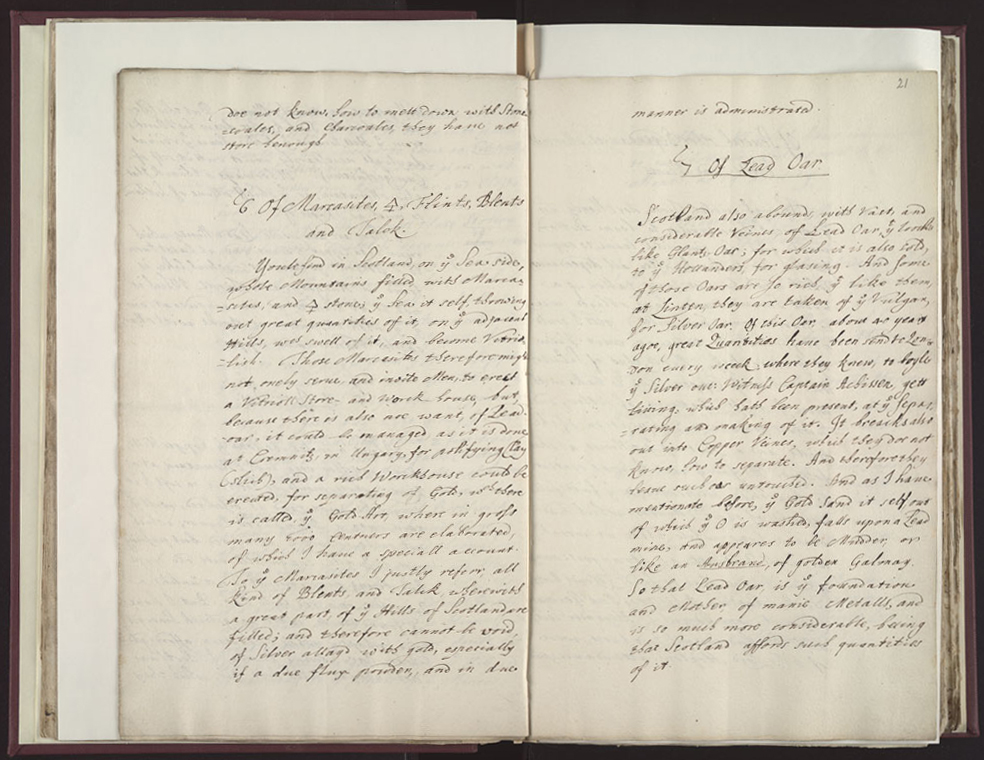 doe not know, how to melt down with Stone
=coales, and Charcoales, they have not
store henough
6 Of Marcasites, 🜍, Flints, Blents
and Talck.
Youle find in Scotland, on yͤ Sea side,
whole Mountains filled, with Marca=
=sites, and 🜍 stone; yͤ Sea it self, throwing
out great quantities of it, on yͤ adjacent
Hills, wᶜʰ swell of it, and become Vitrio=
=lish. Those Marcasites therefore might
not onely serve, and invite Men, to erect
a Vitrioll Store- and Work house, but,
because there is also noe want, of Lead-
oar, it could be managed as it is done
at Cremnitz, in Ungary, for
(slick), and a rich Workhouse could be
erected, for separating of Gold, wᶜʰ there
is called yͤ Gold-Art, where in gross
many 1000 Centners are elaborated,
of which I have a speciall account.
To yͤ Marcasites I justly referr, all
kind of Blents, and Talck, wherewith
a great part, of yͤ Hills of Scotland are
filled; and therefore cannot be void,
of Silver allayd with gold, especially
if a due flux powder, and in due
21
manner is administrated.
7 Of Lead Oar
Scotland also abounds, with Vast, and
considerable Veines, of Lead Oar, yᵗ looks
like Glants Oar; for which it is also sold,
to yͤ Hollanders, for glasing. And some
of those Oars are so rich, yᵗ like them,
at Linten, they are taken of yͤ Vulgar,
for Silver Oar. Of this Oar, about 40 years
agoe, great Quantities have been send to Lon=
don every week, where they knew, to boyle
yͤ Silver out: Witness Captain Achissen, yett
living, which hath been present, at yͤ Sepa=
=rating and making of it. It breacks also
out into Copper Veines, which they doe not
know, how to separate. And therefore they
leave such oar untouched. And as I have
mentionate before, yͤ Gold sand it self out
of which yͤ ☉ is washed, falls upon a Lead
mine, and appeares to be Mudder, or
like an Ausbeane, of golden Galmay.
So that Lead Oar, is yͤ foundation
and Mother, of manie Metalls, and
is so much more considerable, being
that Scotland affords such quantities
of it.